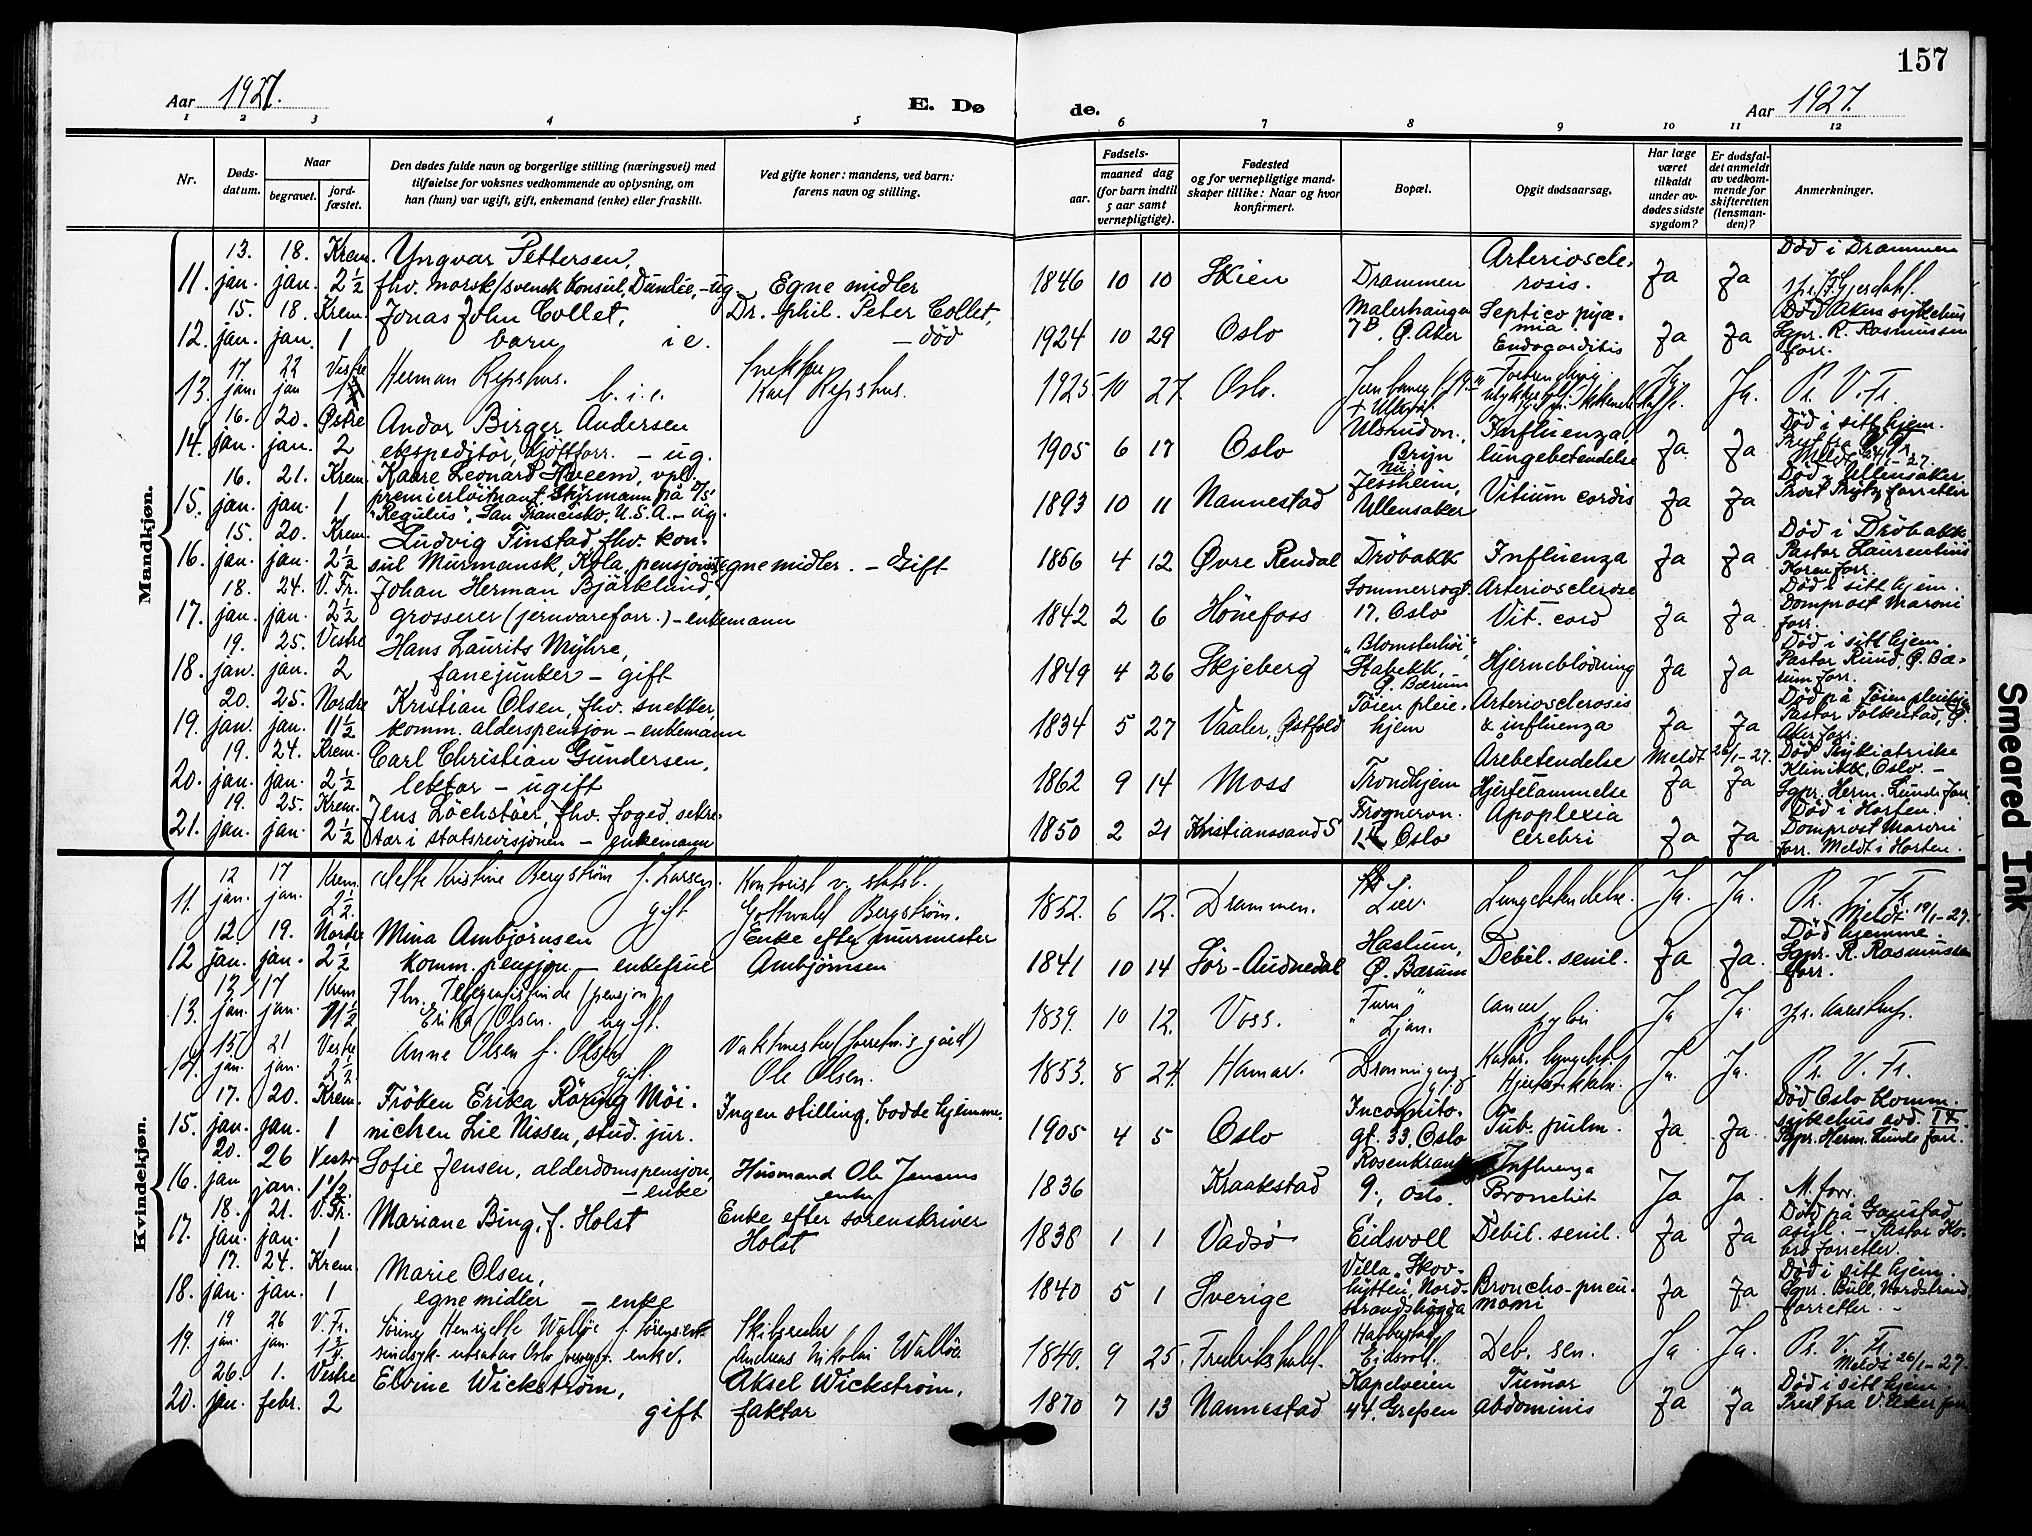 157
Aar 1927.
E. Dø
de.
Aar 1927.
1 2 3 4 5 6 7 8 9 10 11 12
Nr.
Døds-
datum.
Naar
begravet.
jord-
fæstet.
Den dødes fulde navn og borgerlige stilling (næringsvei) med
tilføielse for voksnes vedkommende av oplysning, om
han (hun) var ugift, gift, enkemand (enke) eller fraskilt.
Ved gifte koner: mandens, ved barn:
farens navn og stilling.
Fødsels-
aar.
maaned dag
(for barn indtil
5 aar samt
vernepligtige).
Fødested
og for vernepligtige mand-
skaper tillike: Naar og hvor
konfirmert.
Bopæl.
Opgit dødsaarsag.
Har læge
været
tilkaldt
under av-
dødes sidste
sygdom?
Er dødsfal-
det anmeldt
av vedkom-
mende for
skifteretten
(lensman-
den)?
Anmerkninger.
Mandkjøn.
11. 13. jan. 18. jan. Krem. 2½ Yngvar Pettersen,
fhv. norsk/svensk konsul, Dundee, - ug. Egne midler
1846 10 10 Skien Drammen Arterioscle-
rosis. Ja Ja Død i Drammen
12. 15. jan. 18. jan. Krem. 1 Jonas John Collet,
barn i e. Dr. phil. Peter Collet,
- død
1924 10 29 Oslo Malerhaugv.
7B, Ø. Aker Septico pyæ-
mia
Endocarditis Ja Ja Død Akers sykehus
Sgpr. R. Rasmussen
forr.
13. 17 jan. 22 jan Vestre Herman Repshus.
b. i. e. Snekker
Karl Repshus.
1925 10 27. Oslo. Ja. Pr. V. Fr.
14. 16. jan. 20. jan. Østre 2 Andor Birger Andersen
ekspeditør, kjøttforr. - ug.
1905 6 17 Oslo Ulsrudvn.,
Bryn Influenza,
lungebetendelse Ja Ja Død i sitt hjem.
Meldt 24/1-27.
15. 16. jan. 21. jan. Krem. 1 Kaare Leonard Hveem, vpl.
premierløitnant, Styrmann på D/S
"Regulus", San Francisko, U.S.A. - ug.
1893 10 11 Nannestad Nu.
Jessheim,
Ullensaker Vitium cordis Ja Ja Død i Ullensaker
forretter
16. 15. jan. 20. jan. Krem. 2½ Ludvig Finstad fhv. kon-
sul Murmansk, Kola, pensjonist, egne midler. - Gift
1856 4 12 Øvre Rendal Drøbakk Influenza Ja Ja Død i Drøbakk
Pastor Laurentius
Koren forr.
17. 18. jan. 24. jan. V. Fr. 2½ Johan Herman Bjørklund,
grosserer (jernvareforr.) - enkemann
1842 2 6 Hønefoss Sommerrogt.
17, Oslo Arteriosclerose
Vit. cord Ja Ja Død i sitt hjem.
Domprost Maroni
forr.
18. 19. jan. 25. jan. Vestre 2 Hans Laurits Myhre,
fanejunker - gift
1849 4 26 Skjeberg "Blomsterhøi",
Stabekk,
Ø. Bærum Hjerneblödning Ja Ja Død i sitt hjem.
Pastor Ruud, Ø. Bæ-
rum forr.
19. 20. jan. 25. jan. Nordre 11½ Kristian Olsen, fhv. snekker,
komm. alderspensjon - enkemann
1834 5 27 Vaaler, Østfold Tøien pleie-
hjem Arteriosclerosis
& influenza Ja Ja Død på Tøien pleiehj.
Pastor Folkestad, Ø.
Aker forr.
20. 19. jan. 24. jan. Krem. 2½ Carl Christian Gundersen,
lektor - ugift
1862 9 14 Moss Trondhjem Årebetendelse
Hjertelammelse Meldt 26/1-27.
Ja Ja Død Psykiatriske
Klinikk, Oslo. -
Sgpr. Herm. Lunde forr.
21. 19. jan. 25. jan. Krem. 2½ Jens Løchstøer, fhv. foged, sekre-
tær i statsrevisjonen - enkemann
1850 2 21 Kristianssand S Frognervn.
Oslo Apoplexia
cerebri Ja Ja Død i Horten.
Domprost Maroni
forr. Meldt i Horten.
Kvindekjøn.
11. 12 jan. 17 jan. Krem. 2½. Kristine Bergstrøm f. Larsen.
gift Kontorist v. statsb.
Gottwald Bergstrøm.
1852. 6 12. Drammen. Lier. Lungebetendelse. Ja. Ja. Pr. V. Fr.
Meldt 19/1-27.
12 12 jan. 19. jan. Nordre 2½ Mina Ambjörnsen
komm. pensjon - enkefrue Enke efter murmester
Ambjörnsen
1841 10 14 Sør-Audnedal Haslum,
Ø. Bærum Debil. senil. Ja Ja Död hjemme.
Sgpr. R. Rasmussen
forr.
13. 13 jan. 17 jan. Krem 11½ Fhv. Telegrafistinde (pensjon)
Erika Olsen. ugift.
1839. 10 12. Voss. "Furu"
Ljan. Cancer
pylori Ja Ja.
14. 15. jan. 21 jan. Vestre 2½. Anne Olsen f. Olsen
gift. Vaktmester
Ole Olsen.
1853. 8 24. Hamar. Ja. Ja. Pr. V. Fr.
15. 17. jan. 20. jan. Krem. 1 Frøken Erika Röring Möi-
nichen Lie Nissen, stud. jur. Ingen stilling, bodde hjemme.
1905 4 5 Oslo Incognito-
gt. 33, Oslo Tub. pulm. Ja Ja Död Oslo komm.
sykehus avd. IX.
Sgpr. Herm. Lunde forr.
16. 20. jan 26 jan. Vestre 1½. Sofie Jensen, alderdomspensjon,
- enke Husmand Ole Jensens
enke
1836 Kraakstad Rosenkrantz
9., Oslo. Influenza
Bronchit Ja Ja. M. forr.
17. 18. jan. 21. jan. V. Fr. 1 Mariane Bing, f. Holst Enke efter sorenskriver
Holst
1838 1 1 Vadsø Eidsvoll Debil. senil. Ja Ja Död på Gaustad
asyl. - Pastor Ho-
bro forretter.
18. 17. jan. 24. jan. Krem. 1 Marie Olsen,
egne midler - enke
1840 5 1 Sverige Villa "Skov-
hytten", Nord-
strandshøgda Broncho-pneu-
moni Ja Ja Död i sitt hjem.
Sgpr. Bull, Nordstrand
forretter. -
19. 19 jan. 26 jan. V. Fr. 1¾ Henriette Walløe f. Sørensen
enke. Skibsreder
Andreas Nikolai Walløe
1840. 9 25. Fredrikshald. Eidsvoll. Deb. sen. Ja. Ja. Pr. V. Fr.
Meldt 26/1-27.
20. 26. jan. 1. febr. Vestre 2 Elvine Wickström,
gift Aksel Wickström,
faktor
1870 7 13 Nannestad Kapelveien
44, Grefsen Tumor
abdominis Ja Ja Död i sitt hjem.
Prest fra V. Aker forr.
Smeared Ink